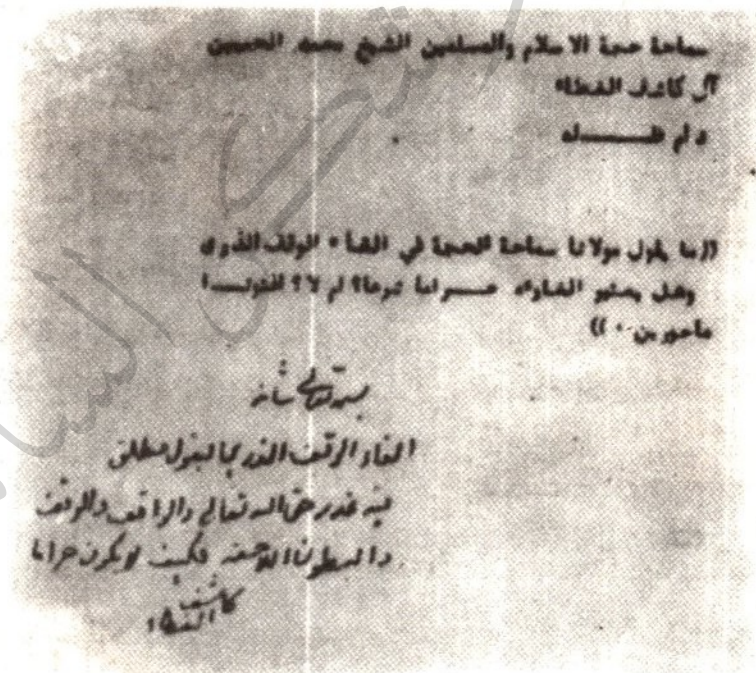 سماحة حجة الاسلام والمسلمين الشيخ محمد الحسين
آل كاشف الغطاء
دام ظـــــله
((ما يقول مولانا سماحة الحجة في الغاء الوقف الذري
وهل يعتبر الغاوءه حـــراما شرعا؟ ام لا؟ افتونـــا
مأجورين ٠ ))
بسمه تعالى شأنه
الغاء الوقف الذري بقول مطلق
فيه غدر حق الله تعالى والواقف والوقف
والبطون اللاحقة فكيف لا يكون حراما
كاشف
الغطاء